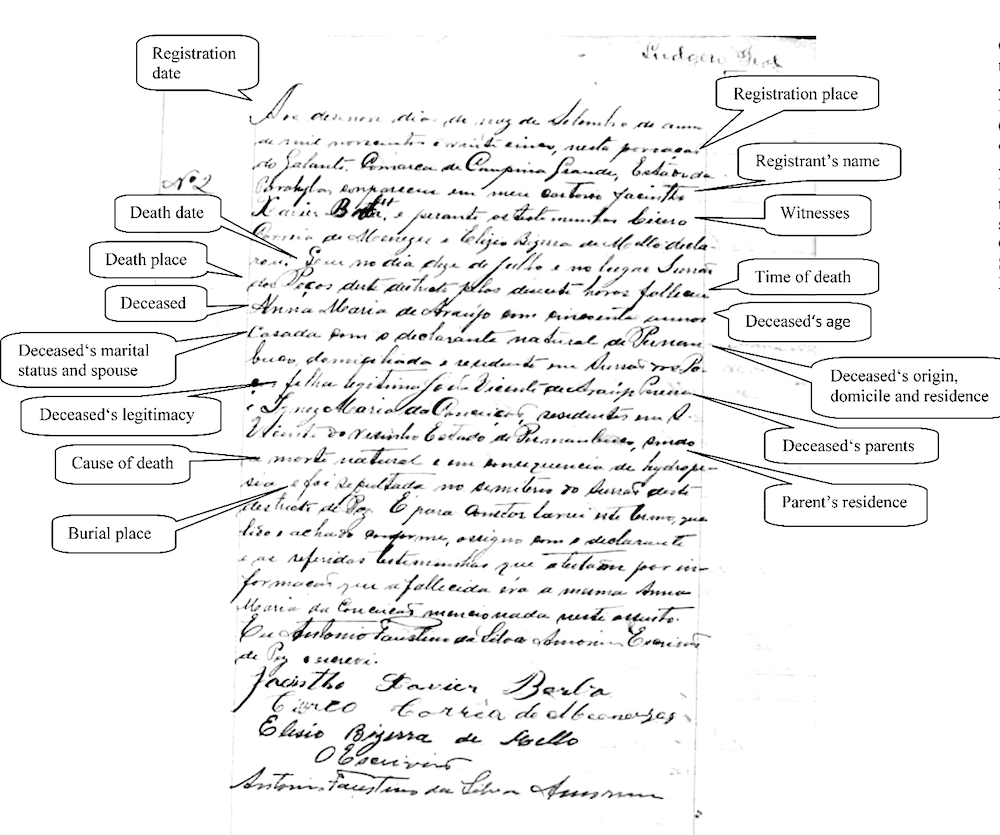 Registration
date
Registration place
Aos dias do mez de Setembro do anno
de mil novecentos e vinte cinco, nesta povoação
do Galante, Comarca de Campina Grande, Estado da
Nº 2
Registrant's name
Parahyba, compareceu em meu cartorio Jacintho
Xavier e perante as testemunhas Cicero
Witnesses
Death date
Correia de Menezes e Elizio Bizerra de Mello decla-
rou: Que no dia doze de Julho e no lugar Surrão
Death place
dos Poços deste districto pelas desesete horas falleceu
Time of death
Deceased
Anna Maria de Araújo com cincoenta annos
Deceased's age
Casada com o declarante natural de Pernam-
Deceased's marital
status and spouse
buco, domiciliada e residente em Surrão dos Po-
Deceased's origin,
domicile and residence
filha legitima João Vicente de Araújo Pereira
Deceased's legitimacy
e Ignez Maria da Conceição, residentes em S.
Vicente do visinho Estado de Pernambuco, sendo
Deceased's parents
Cause of death
a morte natural e em consequencia de hydrope-
sia, e foi sepultada no semiterio do Surrão deste
Parent's residence
Burial place
districto de Paz. E para constar lavrei este termo, que
lido e achado conforme, assigno com o declarante
e as referidas testemunhas que por in-
formação que a fallecida éra a mesma Anna
Maria da Conceição mencionada neste
Eu Antonio Faustino da Silva Amorim Escrivão
de Paz escrevi.
Jacintho Xavier Borba
Cirço Corria de Meonezes
Elisio Bizerra de Mello
O Escrivão
Antonio Faustino da Silva Amorim